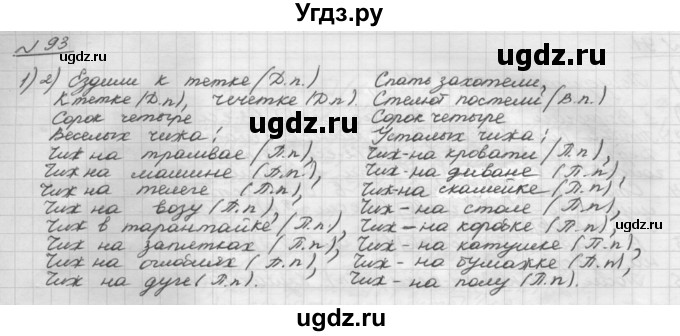 Угдз.ру
№ 93
1) 2) Ездили к тетке (Д.п.)
К тетке (Д.п), чечетке (Д.п)
Сорок четыре
Веселых чижа:
Чиж на трамвае (П.п),
Чиж на машине (П.п.),
Чиж на телеге (П.п),
Чиж на возу (П.п),
Чиж в тарантайке (П.п),
Чиж на запятках (П.п),
Чиж на оглоблях (П.п),
Чиж на дуге (П.п).
Спать захотели,
Стелют постели (В.п.)
Сорок четыре
Усталых чижа:
Чиж - на кровати (П.п),
Чиж - на диване (П.п),
Чиж - на скамейке (П.п),
Чиж - на столе (П.п),
Чиж - на коробке (П.п),
Чиж - на катушке (П.п),
Чиж - на бумажке (П.п),
Чиж - на полу (П.п).
Угдз.ру
Угдз.ру